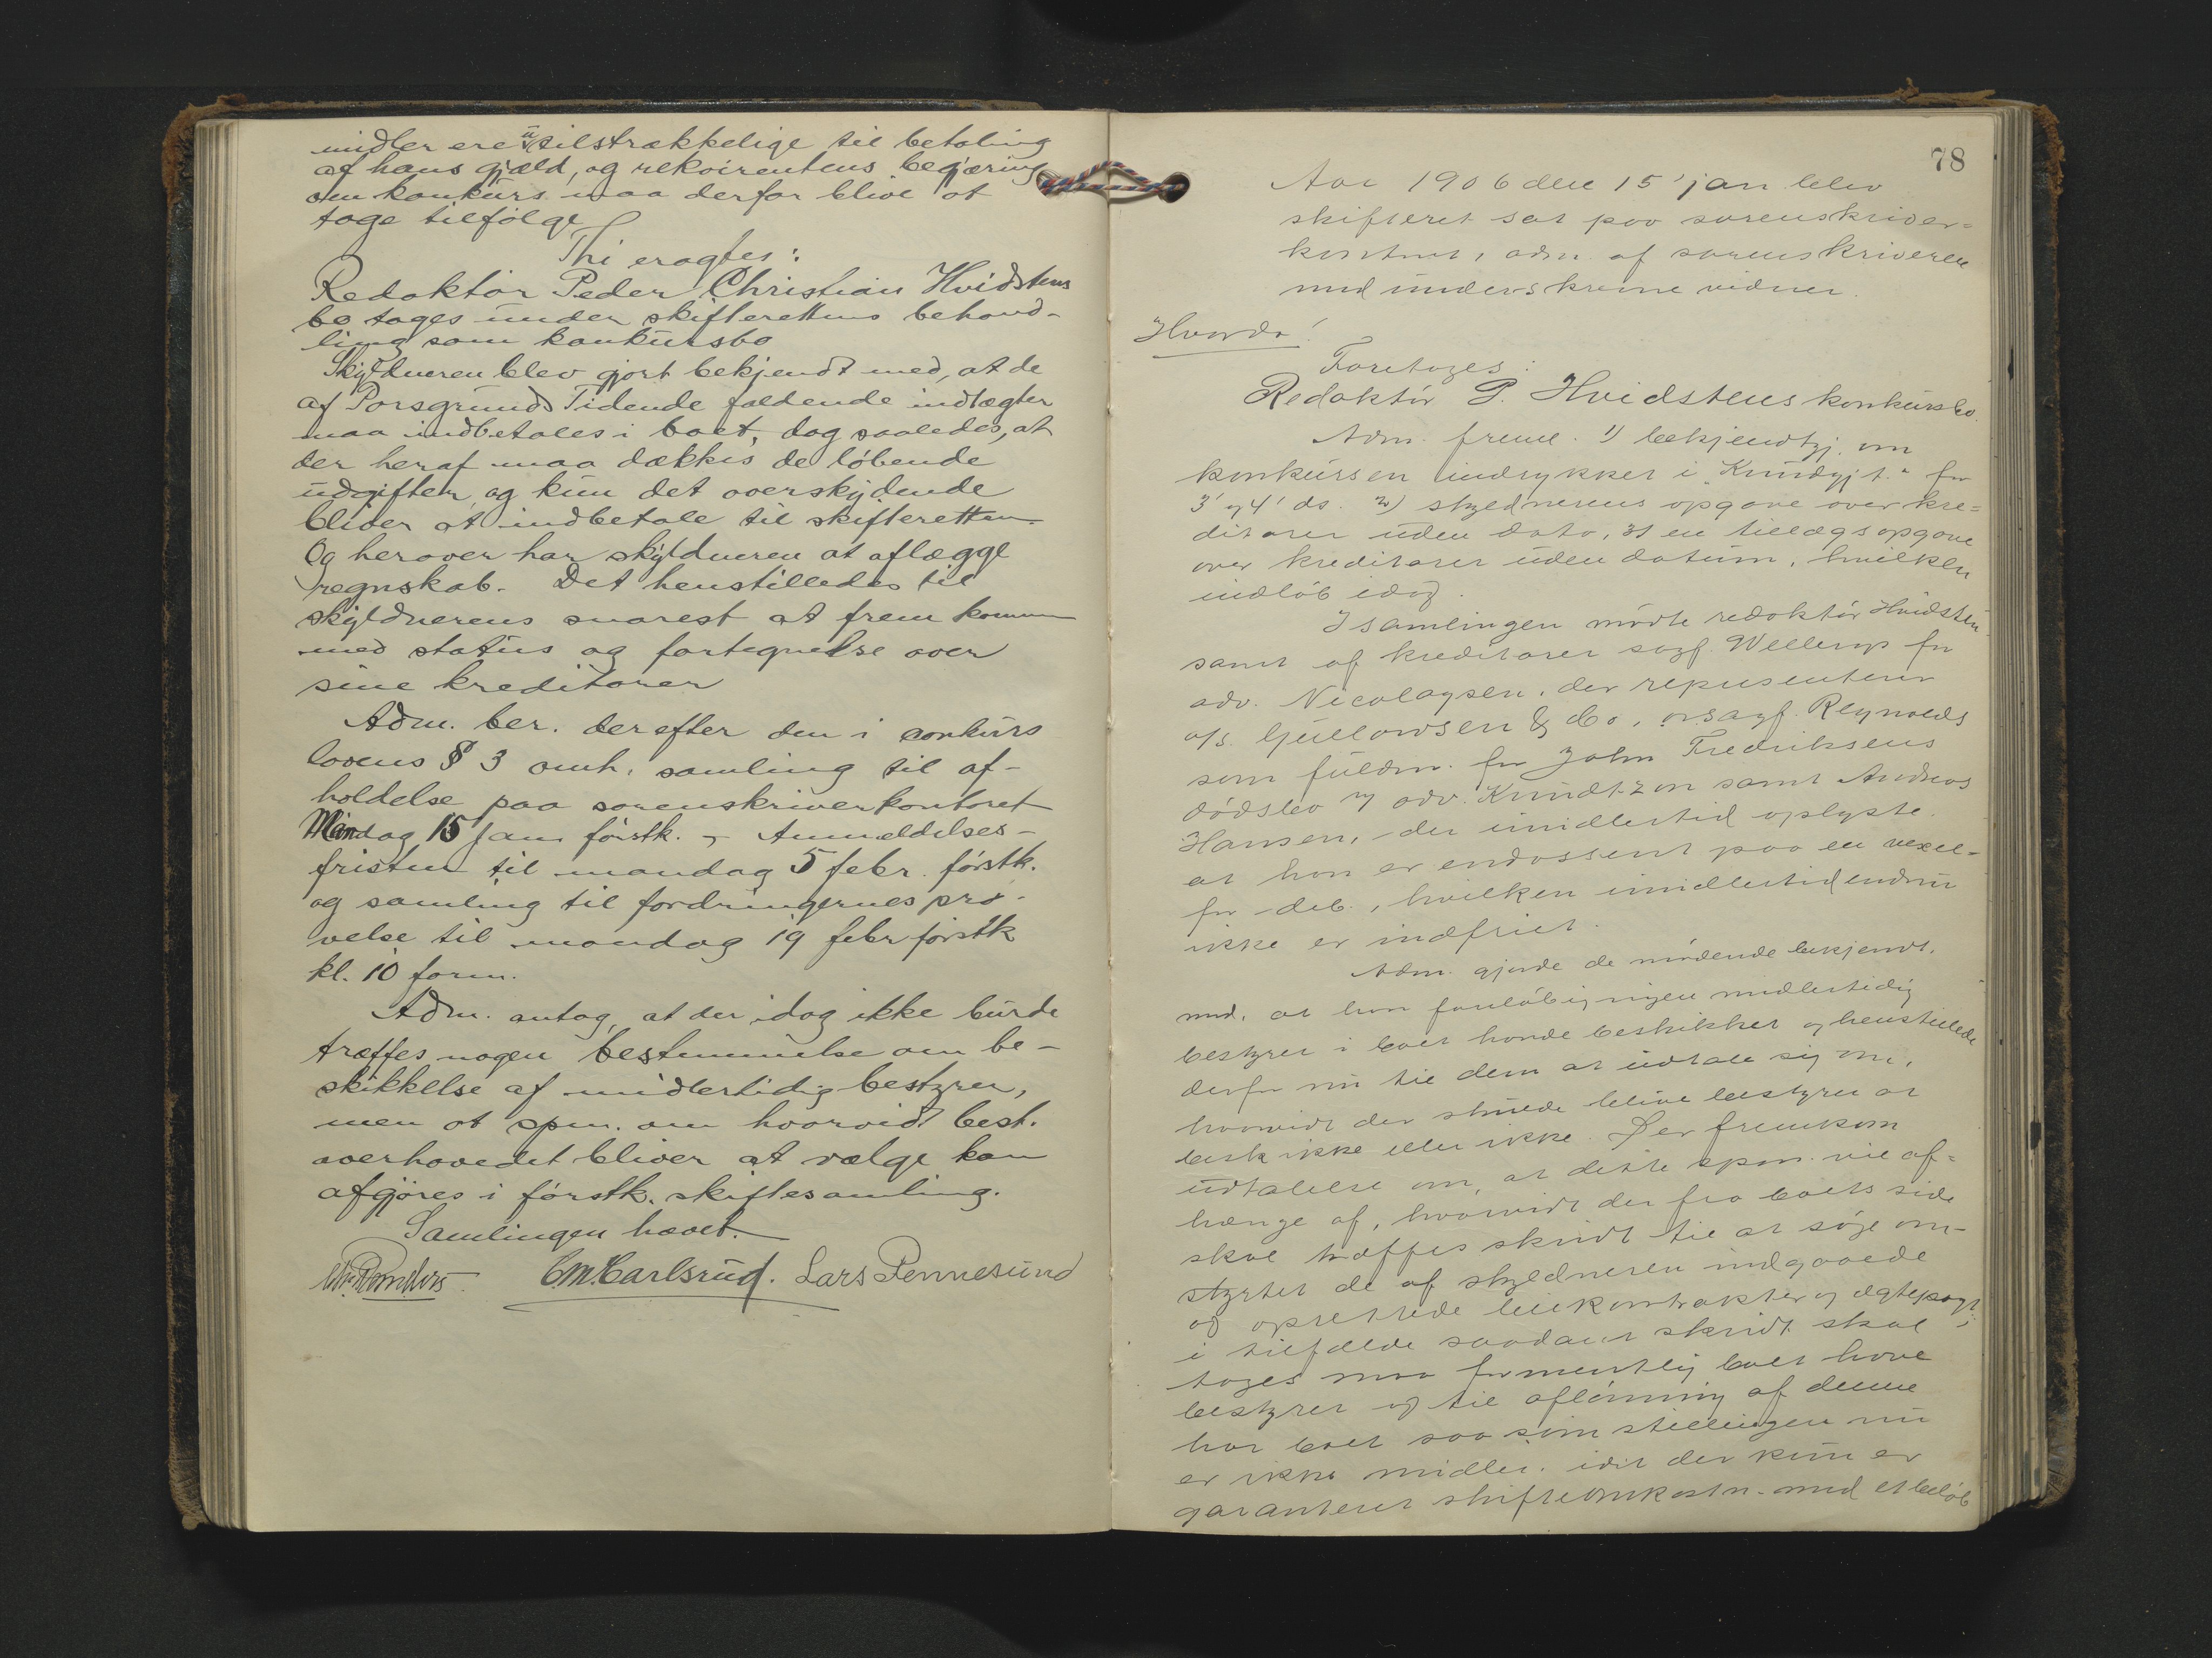 midler ere utilstrækkelige til betaling
af hans gjæld, og rekvirentens begjæring
om konkurs maa derfor blive at
tage tilfølge
Thi eragtes:
Redaktør Peder Christian Hvidstens
bo tages under skifterettens behand-
ling som konkursbo
Skyldneren blev gjort bekjendt med, at de
af Porsgrunds Tidende faldende indtægter
maa indbetales i boet, dog saaledes, at
der heraf maa dækkes de løbende
udgifter, og kun det overskydende
bliver at indbetale til skifteretten.
Og herover har skyldneren at aflægge
regnskab. Det henstilledes til
skyldnerens snarest at frem komme
med status og fortegnelse over
sine kreditorer
Adm. ber. derefter den i conkurs
lovens § 3 omh. samling til af-
holdelse paa sorenskriverkontoret
Mandag 15 jan. førstk. – Anmeldelses-
fristen til mandag 5 febr. førstk.
og samling til fordringernes prø-
velse til mandag 19 febr førstk
kl. 10 form.
Adm. antog, at der idag ikke burde
træffes nogen bestemmelse om be-
skikkelse af midlertidig bestyrer,
men at spm. om hvorvidt best.
overhovedet bliver at vælge kan
afgjøres i førstk. skiftesamling.
Samlingen hævet.
C.M. Carlsrud. Lars Pennesund
78
Aar 1906 den 15' jan blev
skifteret sat paa sorenskriver-
kontoret, adm. af sorenskriveren
med underskrevne vidner.
Hvorda!
Foretoges:
Redaktør P. Hvidstens konkursbo.
Adm. freml. 1) bekjendtgj. om
konkursen indrykket i "Kundgjt." for
3' og 4' ds. 2) skyldnerens opgave over kre-
ditorer uden dato, 3) en tillægsopgave
over kreditorer uden datum, hvilken
indløb idag.
I samlingen mødte redaktør Hvidsten
samt af kreditorer sagf. Wellerup for
adv. Nicolaysen, der repræsenterer
a/s. Gullowsen & Co., o.r.sagf. Reynolds
som fuldm. for John Fredriksens
dødsbo og adv. Knudtzon samt Andreas
Hansen, der imidlertid oplyste,
at han er endossent paa en vexel
for deb., hvilken imidlertid endnu
ikke er indfriet.
Adm. gjorde de mødende bekjendt
med, at han foreløbig ingen midlertidig
bestyrer i boet havde beskikket og henstillede
derfor nu til dem at udtale sig om,
hvorvidt der skulde blive bestyrer at
beskikke eller ikke. Der fremkom
udtalelse om, at dette spm. vil af-
hænge af, hvorvidt der fra boets side
skal træffes skridt til at søge om-
styrtet de af skyldneren indgaaede
og oprettede leiekontrakter og ægtepagt;
i tilfælde saadant skridt skal
tages maa formentlig boet have
bestyrer og til aflønning af denne
har boet saa som stillingen nu
er ikke midler, idet der kun er
garanteret skifteomkostn. med et beløb